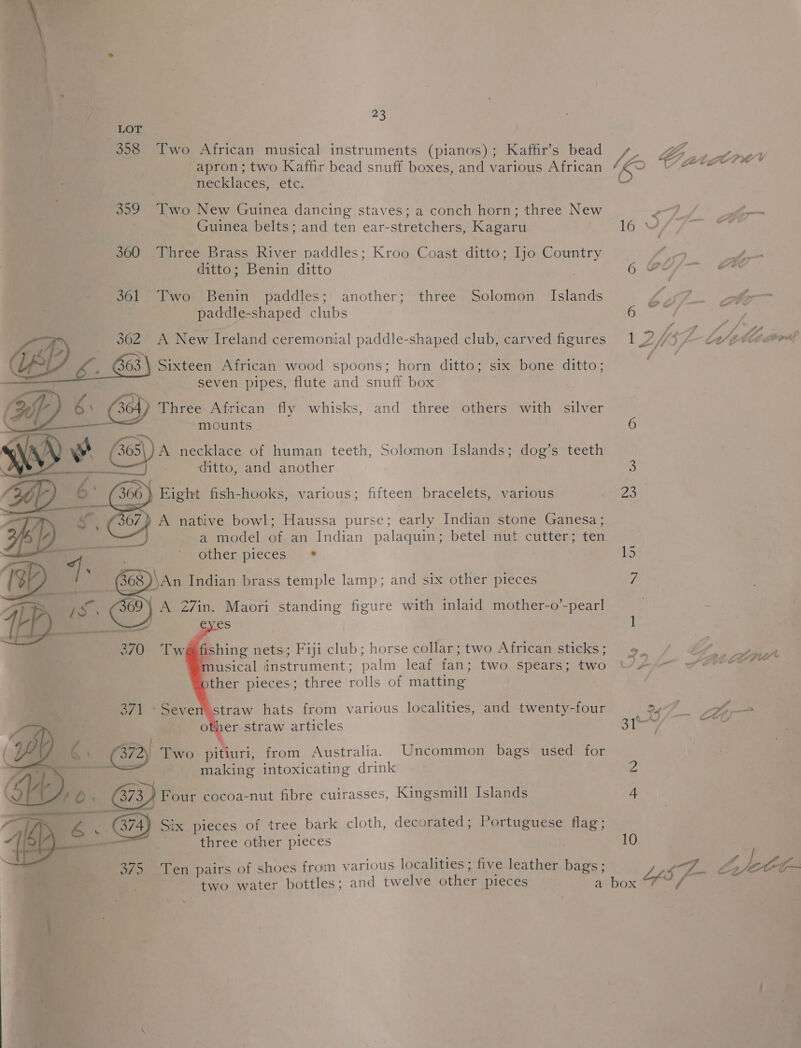 23
LOT
358 Two African musical instruments (pianos); Kaffir's bead
apron; two Kaffir bead snuff boxes, and various African
necklaces, etc.
359 Two New Guinea dancing staves; a conch horn; three New
Guinea belts; and ten ear-stretchers, Kagaru 16
360 Three Brass River paddles; Kroo Coast ditto; Ijo Country
ditto; Benin ditto 6
361 Two Benin paddles; another; three Solomon Islands
paddle-shaped clubs 6
362 A New Ireland ceremonial paddle-shaped club, carved figures 1
363 Sixteen African wood spoons; horn ditto; six bone ditto;
seven pipes, flute and snuff box
364 Three African fly whisks, and three others with silver
mounts 6
365 A necklace of human teeth, Solomon Islands; dog's teeth
ditto, and another 3
366 Eight fish-hooks, various; fifteen bracelets, various 23
367 A native bowl; Haussa purse; early Indian stone Ganesa;
a model of an Indian palaquin; betel nut cutter; ten
other pieces 15
368 An Indian brass temple lamp; and six other pieces 7
369 A 27in. Maori standing figure with inlaid mother-o'-pearl
eyes 1
370 Two fishing nets; Fiji club; horse collar; two African sticks;
musical instrument; palm leaf fan; two spears; two
other pieces; three rolls of matting
371 Seven straw hats from various localities, and twenty-four
other straw articles 31
372 Two pitiuri, from Australia. Uncommon bags used for
making intoxicating drink 2
373 Four cocoa-nut fibre cuirasses, Kingsmill Islands 4
374 Six pieces of tree bark cloth, decorated; Portuguese flag;
three other pieces 10
375 Ten pairs of shoes from various localities; five leather bags;
two water bottles; and twelve other pieces a box